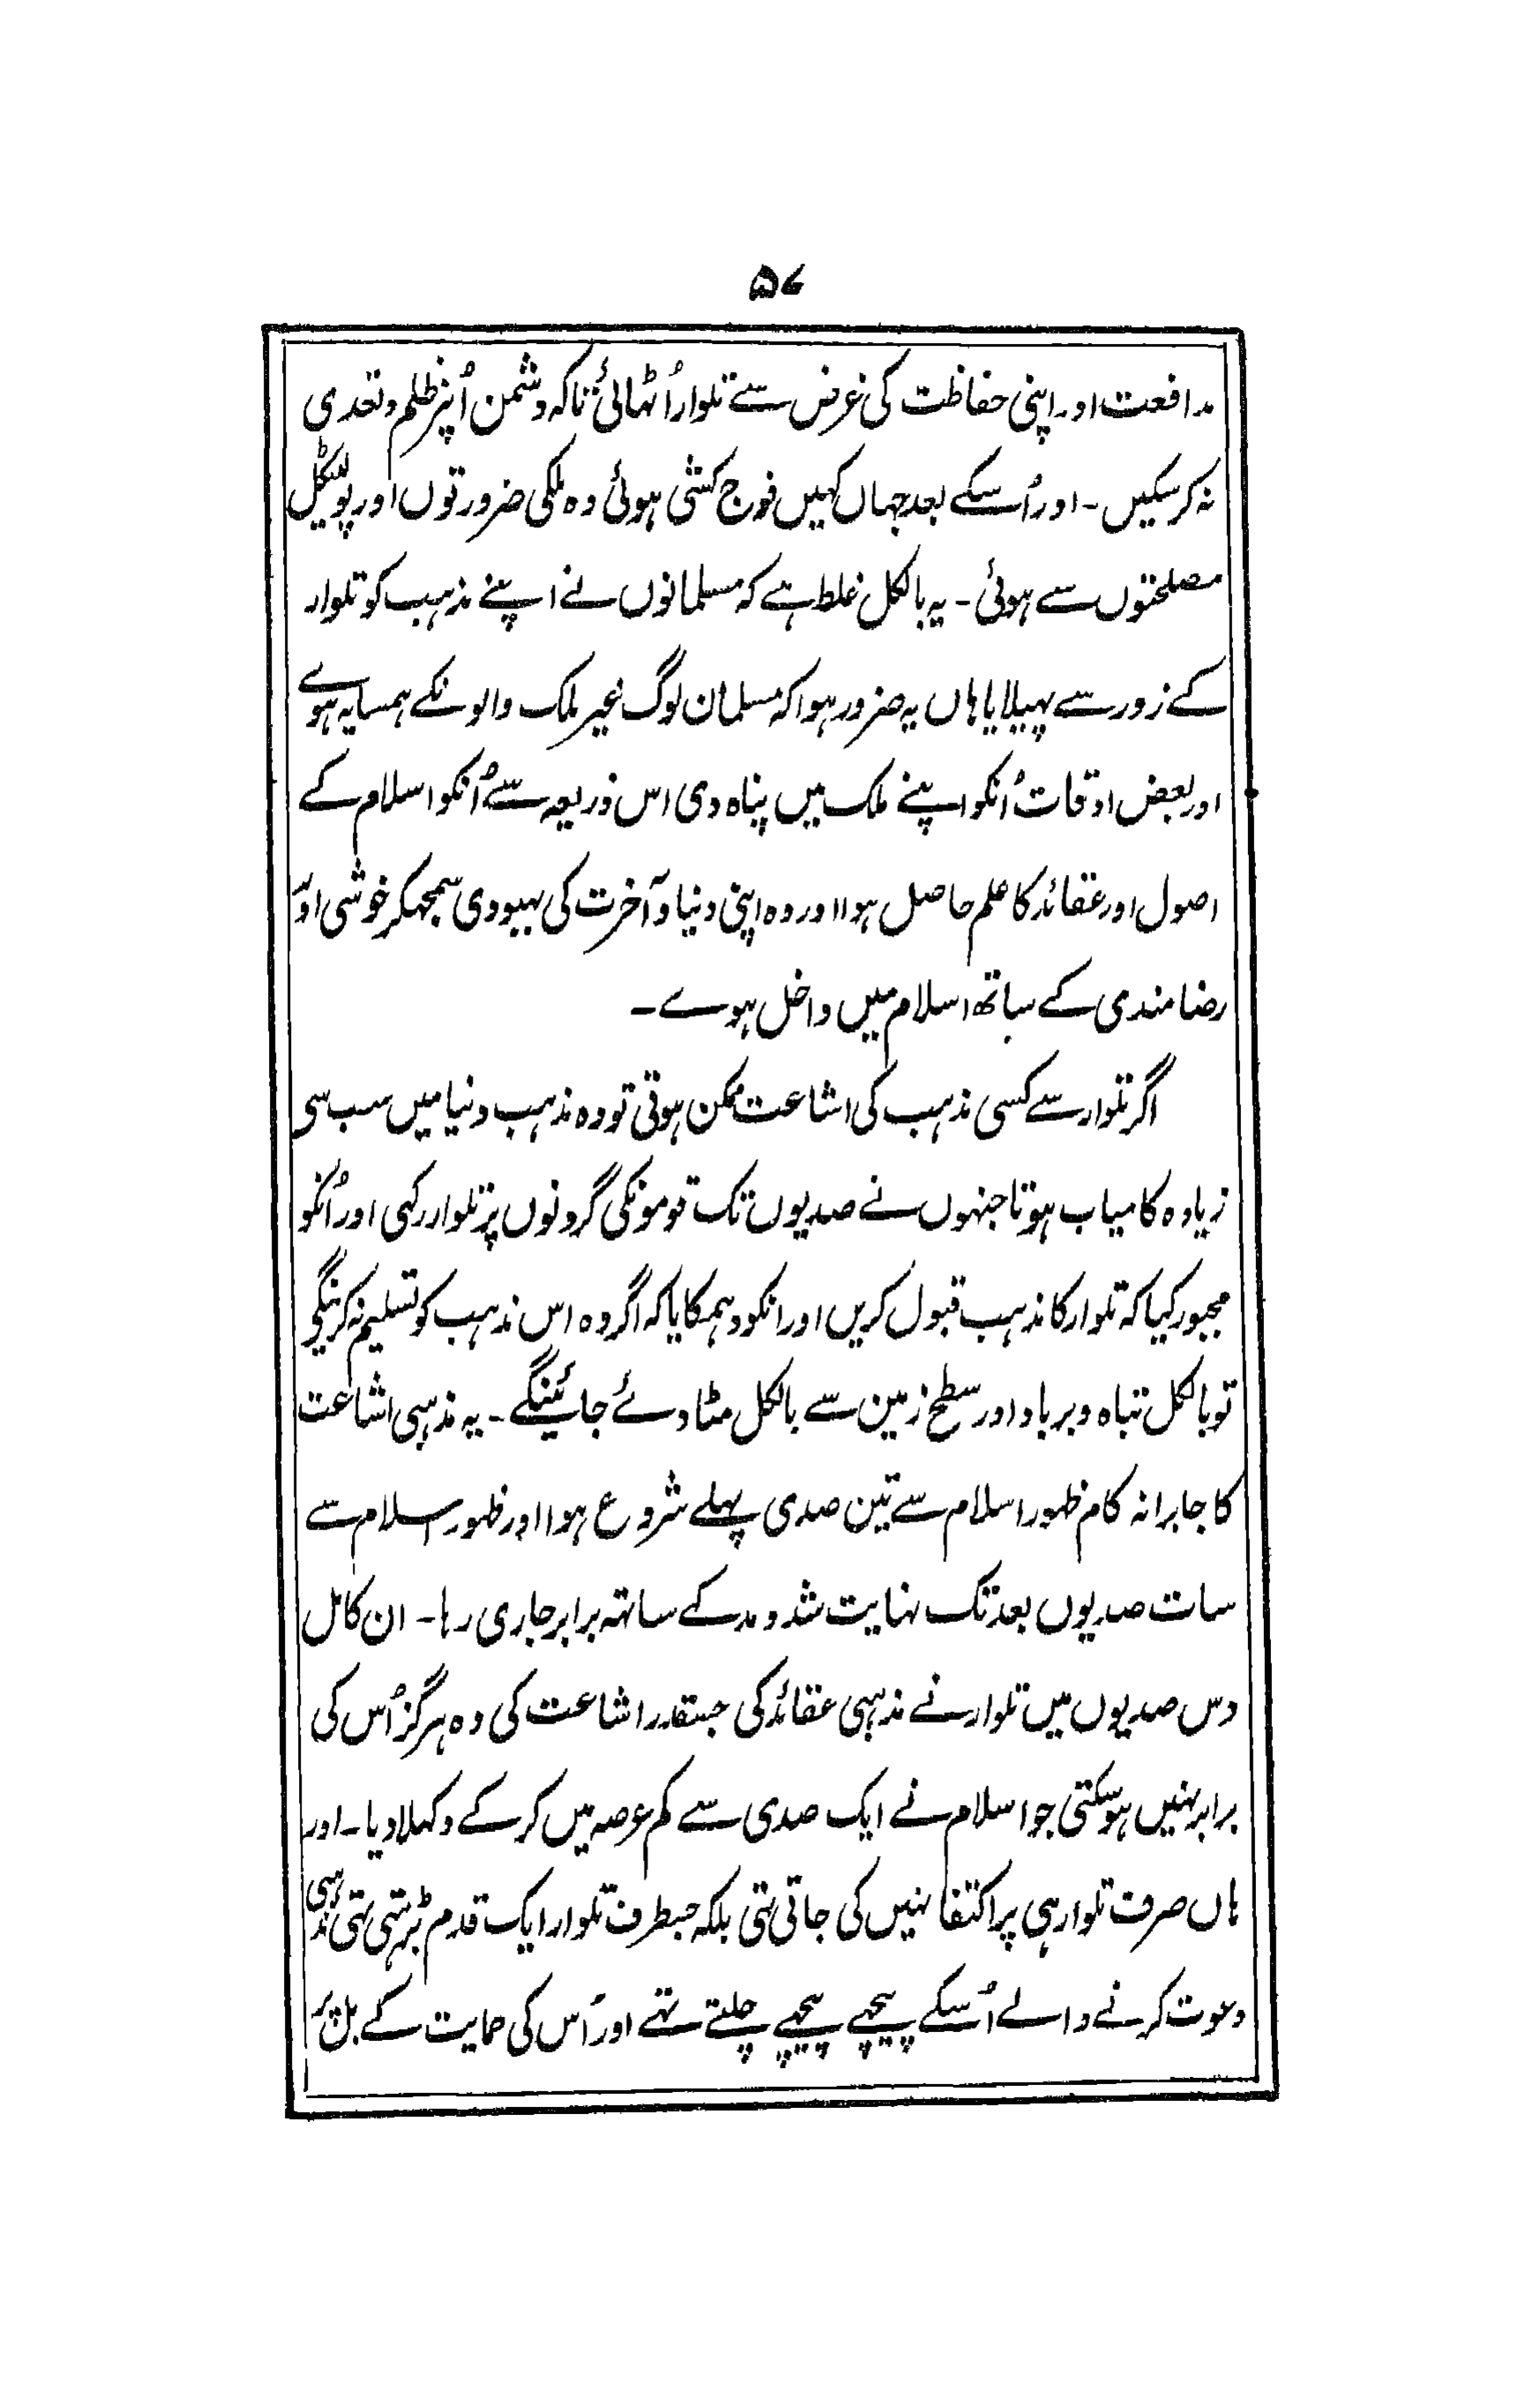 ۵۷
مدافعت اور اپنی حفاظت کی غرض سے تلوار اُٹھائی تاکہ دشمن اُنپر ظلم و تعدی
نہ کرسکیں - اور اُسکے بعد جہاں کہیں فوج کشی ہوئی وہ ملکی ضرورتوں اور پولٹیکل
مصلحتوں سے ہوئی - یہ بالکل غلط ہے کہ مسلمانوں نے اپنے مذہب کو تلوار
کے زور سے پہیلایا ہاں یہ ضرور ہوا کہ مسلمان لوگ غیر ملک والونکے ہمسایہ ہوے
اور بعض اوقات اُنکو اپنے ملک میں پناہ دی اس ذریعہ سے اُنکو اسلام کے
اصول اور عقائد کا علم حاصل ہوا اور وہ اپنی دنیا و آخرت کی بہبودی سمجہکر خوشی اور
رضامندی کے ساتھ اسلام میں داخل ہوے -
اگر تلوار سے کسی مذہب کی اشاعت ممکن ہوتی تو وہ مذہب دنیا میں سب سی
زیادہ کامیاب ہوتا جنہوں نے صدیوں تک قومونکی گردنوں پر تلوار رکہی اور اُنکو
مجبور کیا کہ تلوار کا مذہب قبول کریں اور انکو دہمکایا کہ اگر وہ اس مذہب کو تسلیم نہ کرینگی
تو بالکل تباہ و برباد اور سطح زمین سے بالکل مٹا دئے جائینگے - یہ مذہبی اشاعت
کا جابرانہ کام ظہور اسلام سے تین صدی پہلے شروع ہوا اور ظہور اسلام سے
سات صدیوں بعد تک نہایت شد و مد کے ساتہہ برابر جاری رہا - ان کامل
دس صدیوں میں تلوار نے مذہبی عقائد کی جسقدر اشاعت کی وہ ہرگز اُس کی
برابر نہیں ہوسکتی جو اسلام نے ایک صدی سے کم عرصہ میں کرکے دکہلا دیا - اور
ہاں صرف تلوار ہی پر اکتفا نہیں کی جاتی تہی بلکہ جسطرف تلوار ایک قدم بڑہتی تہی مذہبی
دعوت کرنے والے اُسکے پیچہے پیچہے چلتے تہے اور اُس کی حمایت کے بل پر